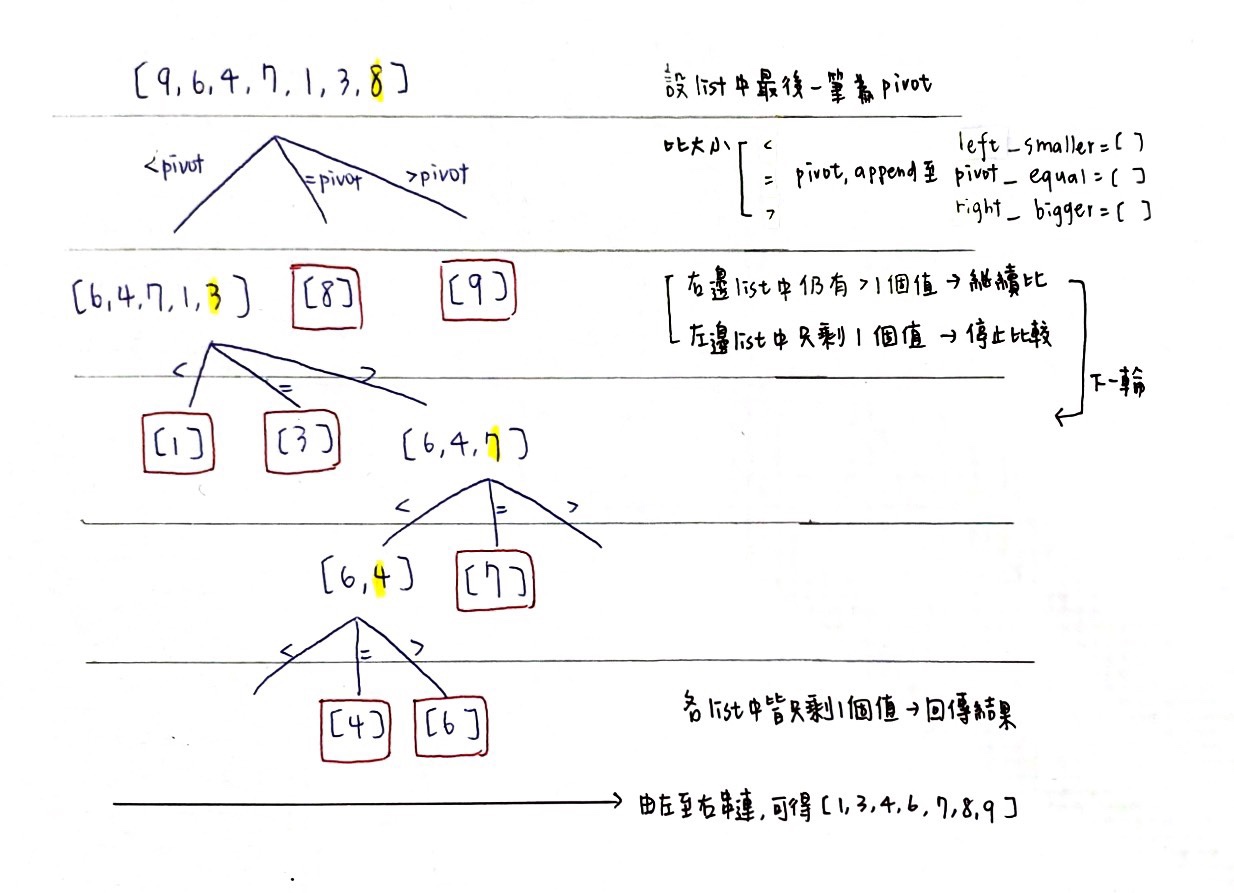 [9,6,4,7,1,3,8]
設list中最後一筆為pivot
<pivot
=pivot
>pivot
比大小
<
=
>
pivot, append至
left_smaller=[ ]
pivot_equal=[ ]
right_bigger=[ ]
[6,4,7,1,3]
[8]
[9]
右邊list中仍有>1個值→繼續比
左邊list中只剩1個值→停止比較
下一輪
<
=
>
[1]
[3]
[6,4,7]
<
=
>
[6,4]
[7]
<
=
>
[4]
[6]
各list中皆只剩1個值→回傳結果
由左至右串連,可得[1,3,4,6,7,8,9]